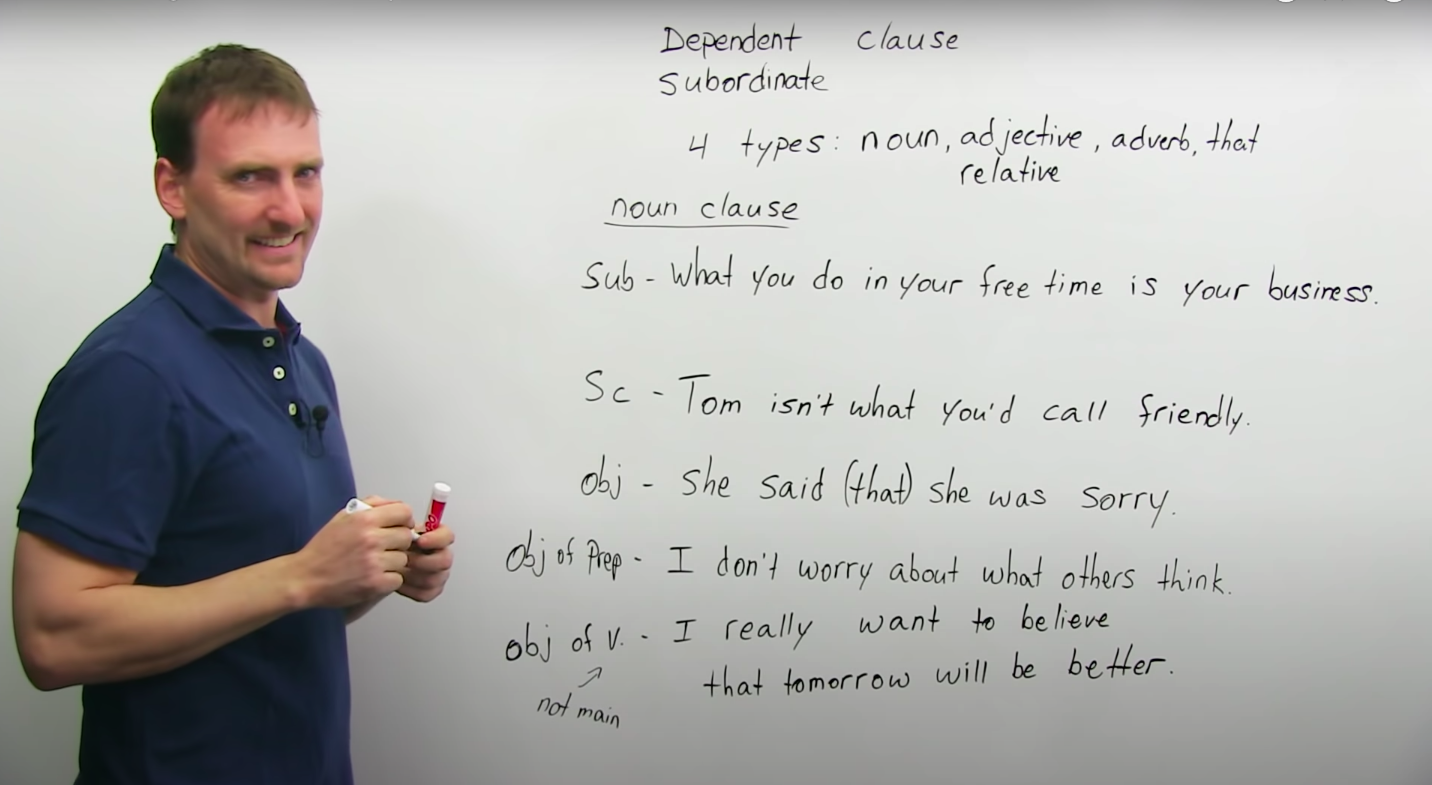 Dependent clause
subordinate
4 types: noun, adjective, adverb, that
relative
noun clause
Sub - What you do in your free time is your business.
Sc - Tom isn't what you'd call friendly.
Obj - She said (that) she was sorry.
Obj of Prep - I don't worry about what others think.
obj of v. - I really want to believe
that tomorrow will be better.
not main